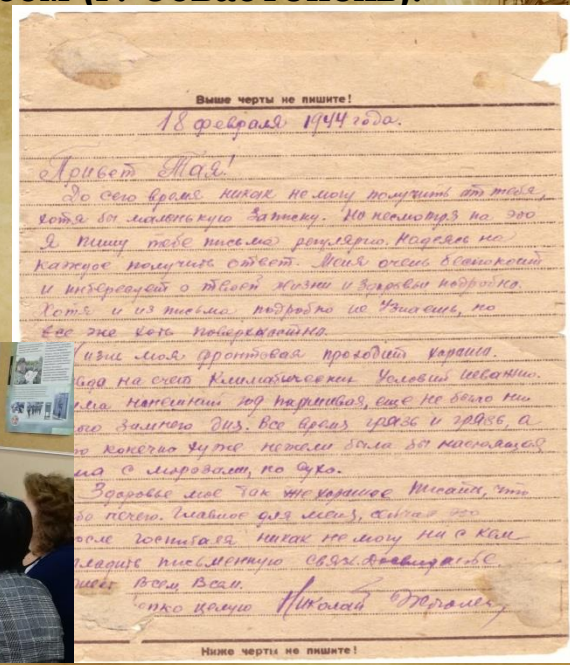 (г. Севастополь).
Выше черты не пишите!
18 февраля 1944 года.
Привет Тая!
До сего время никак не могу получить от тебя,
хотя бы маленькую записку. Но несмотря на это
Я пишу тебе письма регулярно. Надеясь на
каждое получить ответ. Меня очень беспокоит
и интересует о твоей жизни и здоровьи подробно.
Хотя и из письма подробно не узнаешь, но
все же хоть поверхностно.
изнь моя фронтовая проходит хорошо.
вда на счет климатических условий неважно.
има нонешний год паршивая, еще не было ни
ого зимнего дня. Все время грязь и грязь, а
о конечно хуже нежели была бы настоящая
ма с морозами, но сухо.
Здоровье мое так же хорошое писать, что
бо нечего. Главное для меня, сейчас это
осле госпиталя никак не могу ни с кем
ладить письменную связь.
ивет Всем, Всем.
епко целую Николай
Ниже черты не пишите!